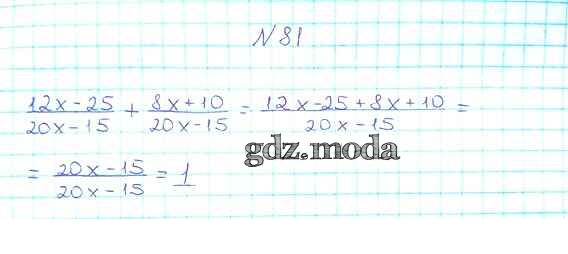 № 81
12x-25/20x-15 + 8x+10/20x-15 = 12x-25+8x+10/20x-15 =
gdz.moda
= 20x-15/20x-15 = 1